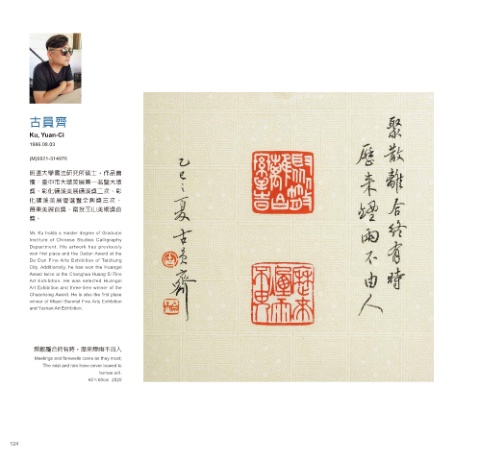 古員齊
Ku, Yuan-Ci
Mr. Ku holds a master degree of Graduate
Institute of Chinese Studies Calligraphy
Department. His artwork has previously
won first place and the Dadun Award at the
Da Dun Fine Arts Exhibition of Taichung
City. Additionally, he has won the Huangxi
Award twice at the Changhua Huang Xi Fine
Art Exhibition. He was selected Huangxi
Art Exhibition and three-time winner of the
Award. He is also the first place
winner of Miaoli Biennial Fine Arts Exhibition
and Yushan Art Exhibition.
聚散離合終有時，歷來煙雨不由人
Meetings and farewells come as they must;
The mist and rain have never bowed to
human will.
聚散離合終有時
歷來煙雨不由人
乙巳夏古員齊
124